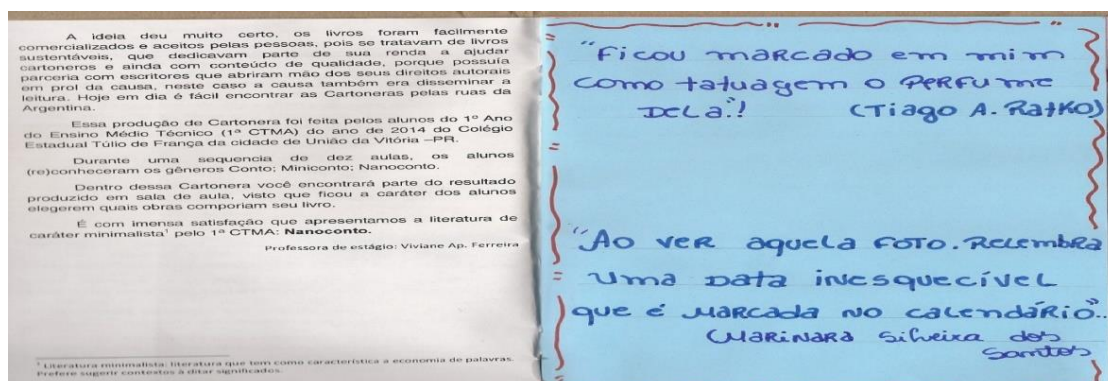 A ideia deu muito certo, os livros foram facilmente
comercializados e aceitos pelas pessoas, pois se tratavam de livros
sustentáveis, que dedicavam parte de sua renda a ajudar
cartoneros e ainda com conteúdo de qualidade, porque possuía
parceria com escritores que abriram mão dos seus direitos autorais
em prol da causa, neste caso a causa também era disseminar a
leitura. Hoje em dia é fácil encontrar as Cartoneras pelas ruas da
Argentina.
Essa produção de Cartonera foi feita pelos alunos do 1º Ano
do Ensino Médio Técnico (1ª CTMA) do ano de 2014 do Colégio
Estadual Túlio de França da cidade de União da Vitória –PR.
Durante uma sequencia de dez aulas, os alunos
(re)conheceram os gêneros Conto; Miniconto; Nanoconto.
Dentro dessa Cartonera você encontrará parte do resultado
produzido em sala de aula, visto que ficou a caráter dos alunos
elegerem quais obras comporiam seu livro.
É com imensa satisfação que apresentamos a literatura de
caráter minimalista¹ pelo 1ª CTMA: Nanoconto.
Professora de estágio: Viviane Ap. Ferreira
¹ Literatura minimalista: literatura que tem como característica a economia de palavras.
Prefere sugerir contextos à ditar significados.
"Ficou marcado em mim
como tatuagem o perfume
dela"!   (Tiago A. Ratko)
"Ao ver aquela foto. Recembra
uma data inesquecível
que é marcada no calendário"..
(Marinara Silveira dos
Santos